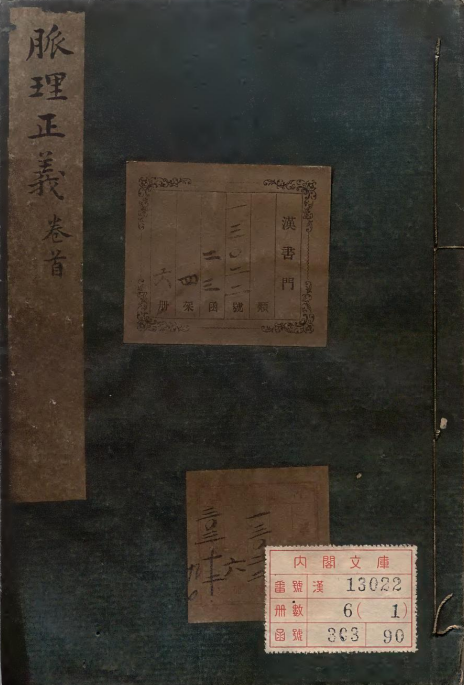 脈理正義 卷首
漢書門
一三〇二二
二三
四
六
類
號
函
架
冊
一三
三〇三
六
內閣文庫
番號 漢 13022
冊數 6( 1)
函號 303 90